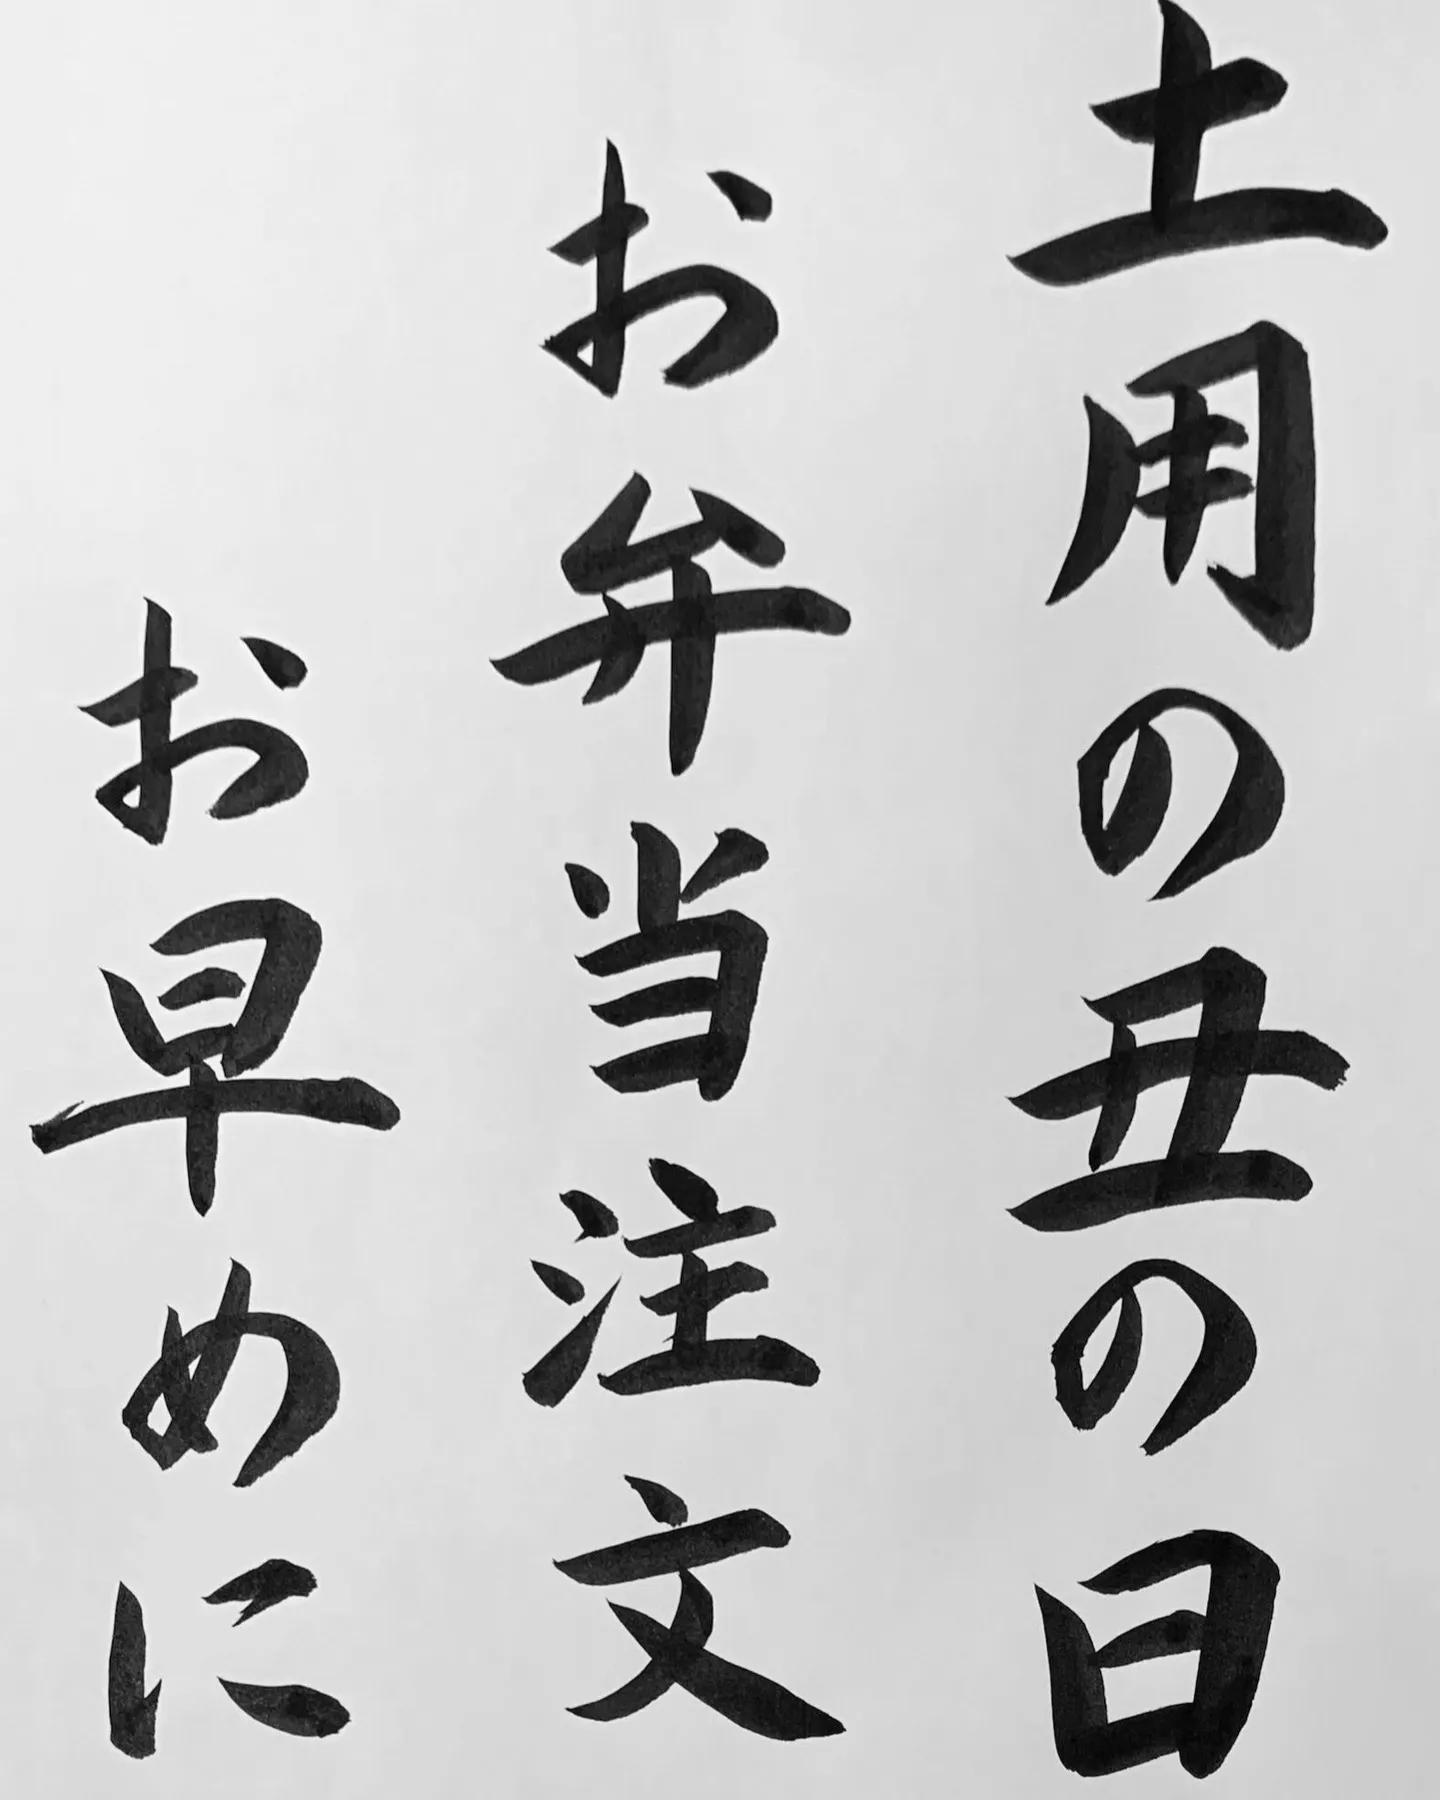 土用の丑の日
お弁当注文
お早めに